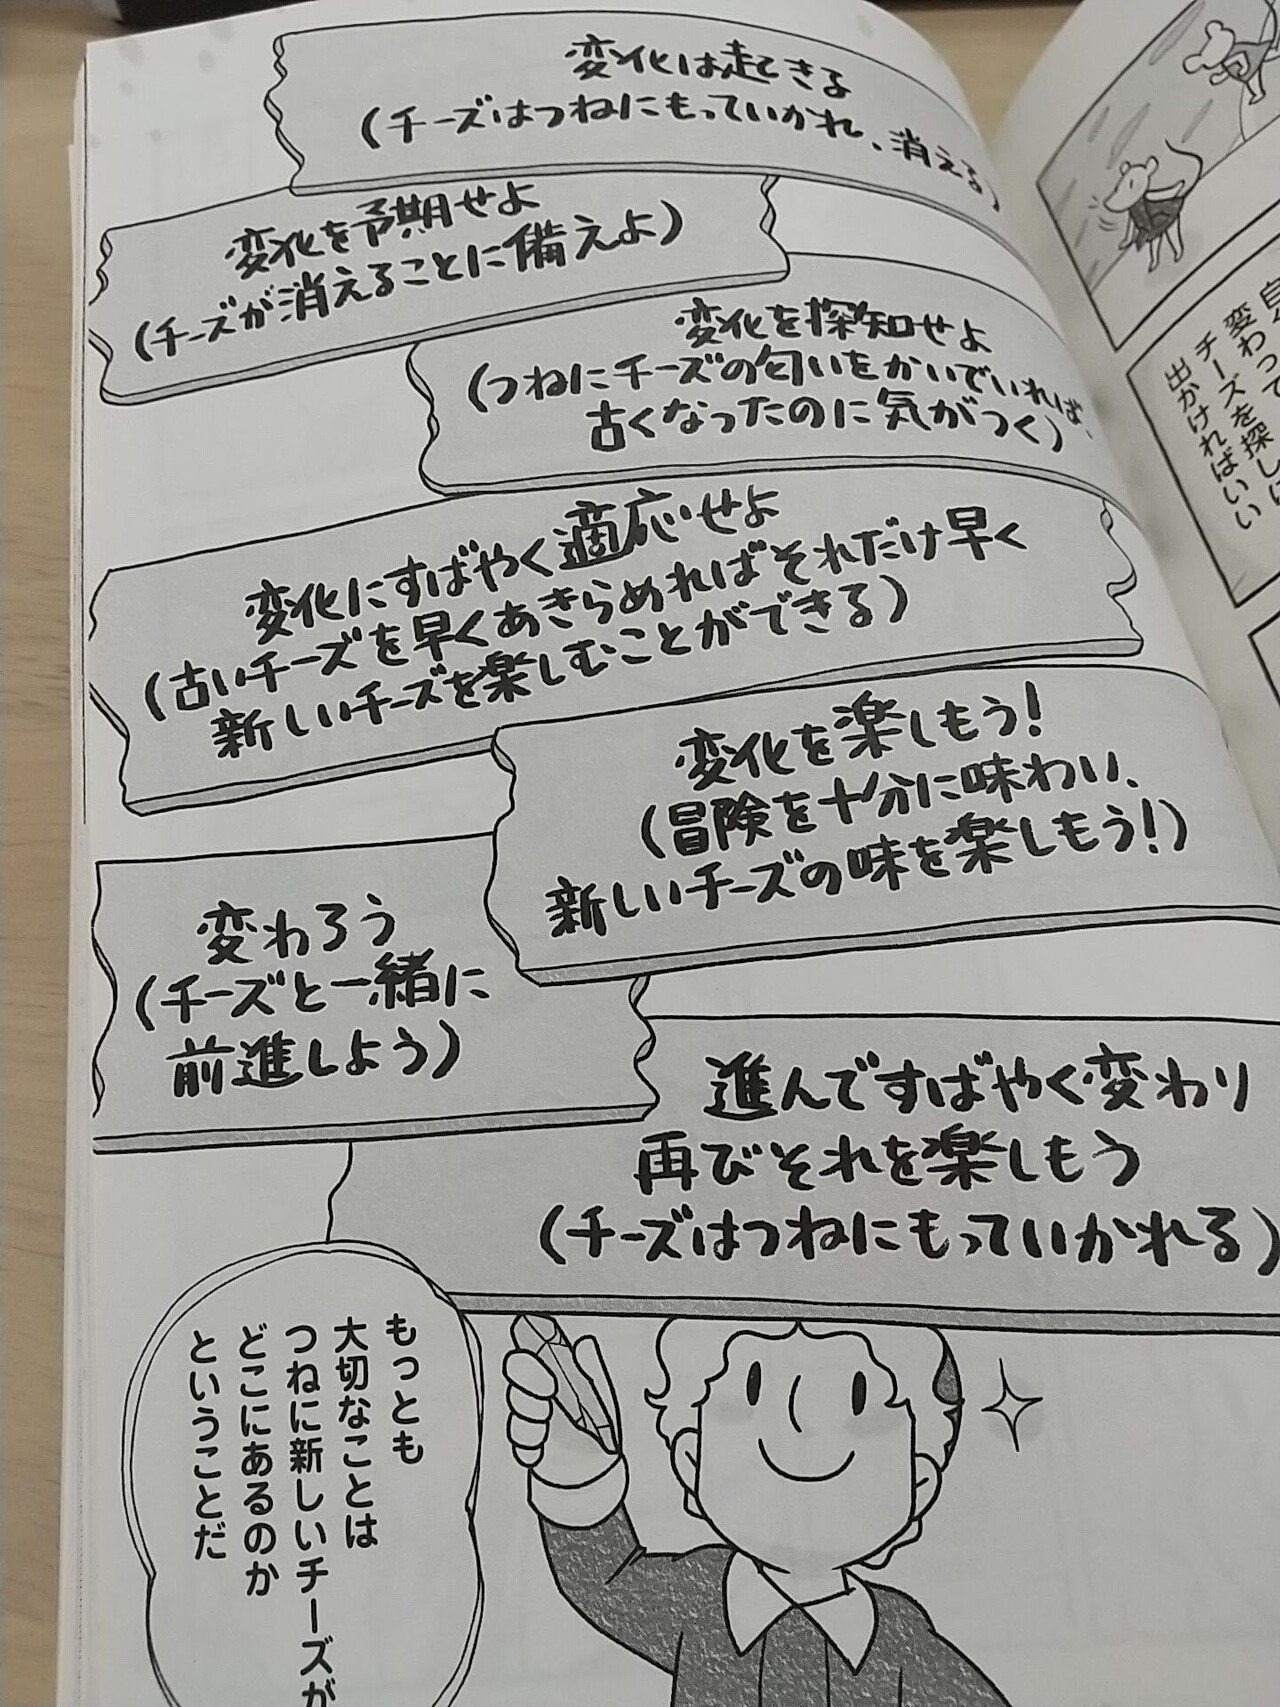 変化は起きる
(チーズはつねにもっていかれ、消える)
変化を予期せよ
(チーズが消えることに備えよ)
変化を探知せよ
(つねにチーズの匂いをかいでいれば、
古くなったのに気がつく)
変化にすばやく適応せよ
(古いチーズを早くあきらめればそれだけ早く
新しいチーズを楽しむことができる)
変化を楽しもう!
(冒険を十分に味わい、
新しいチーズの味を楽しもう!)
変わろう
(チーズと一緒に
前進しよう)
進んですばやく変わり
再びそれを楽しもう
(チーズはつねにもっていかれる)
もっとも
大切なことは
つねに新しいチーズが
どこにあるのか
ということだ
変わって
チーズを探しに
出かければいい